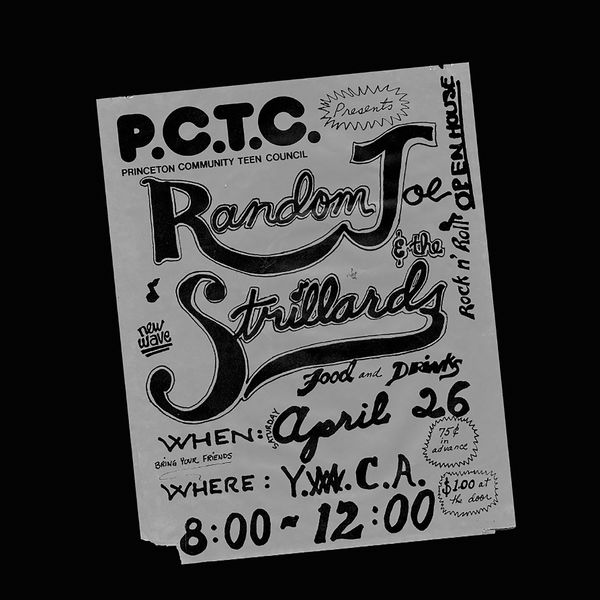 P.C.T.C.
Presents
PRINCETON COMMUNITY TEEN COUNCIL
OPEN HOUSE
Random Joe
& the
Rock n' Roll
Strillards
new
wave
Food and Drinks
WHEN: SATURDAY April 26
BRING YOUR FRIENDS
75¢
in
advance
WHERE: Y. .C.A.
$1.00 at
the door
8:00 - 12:00